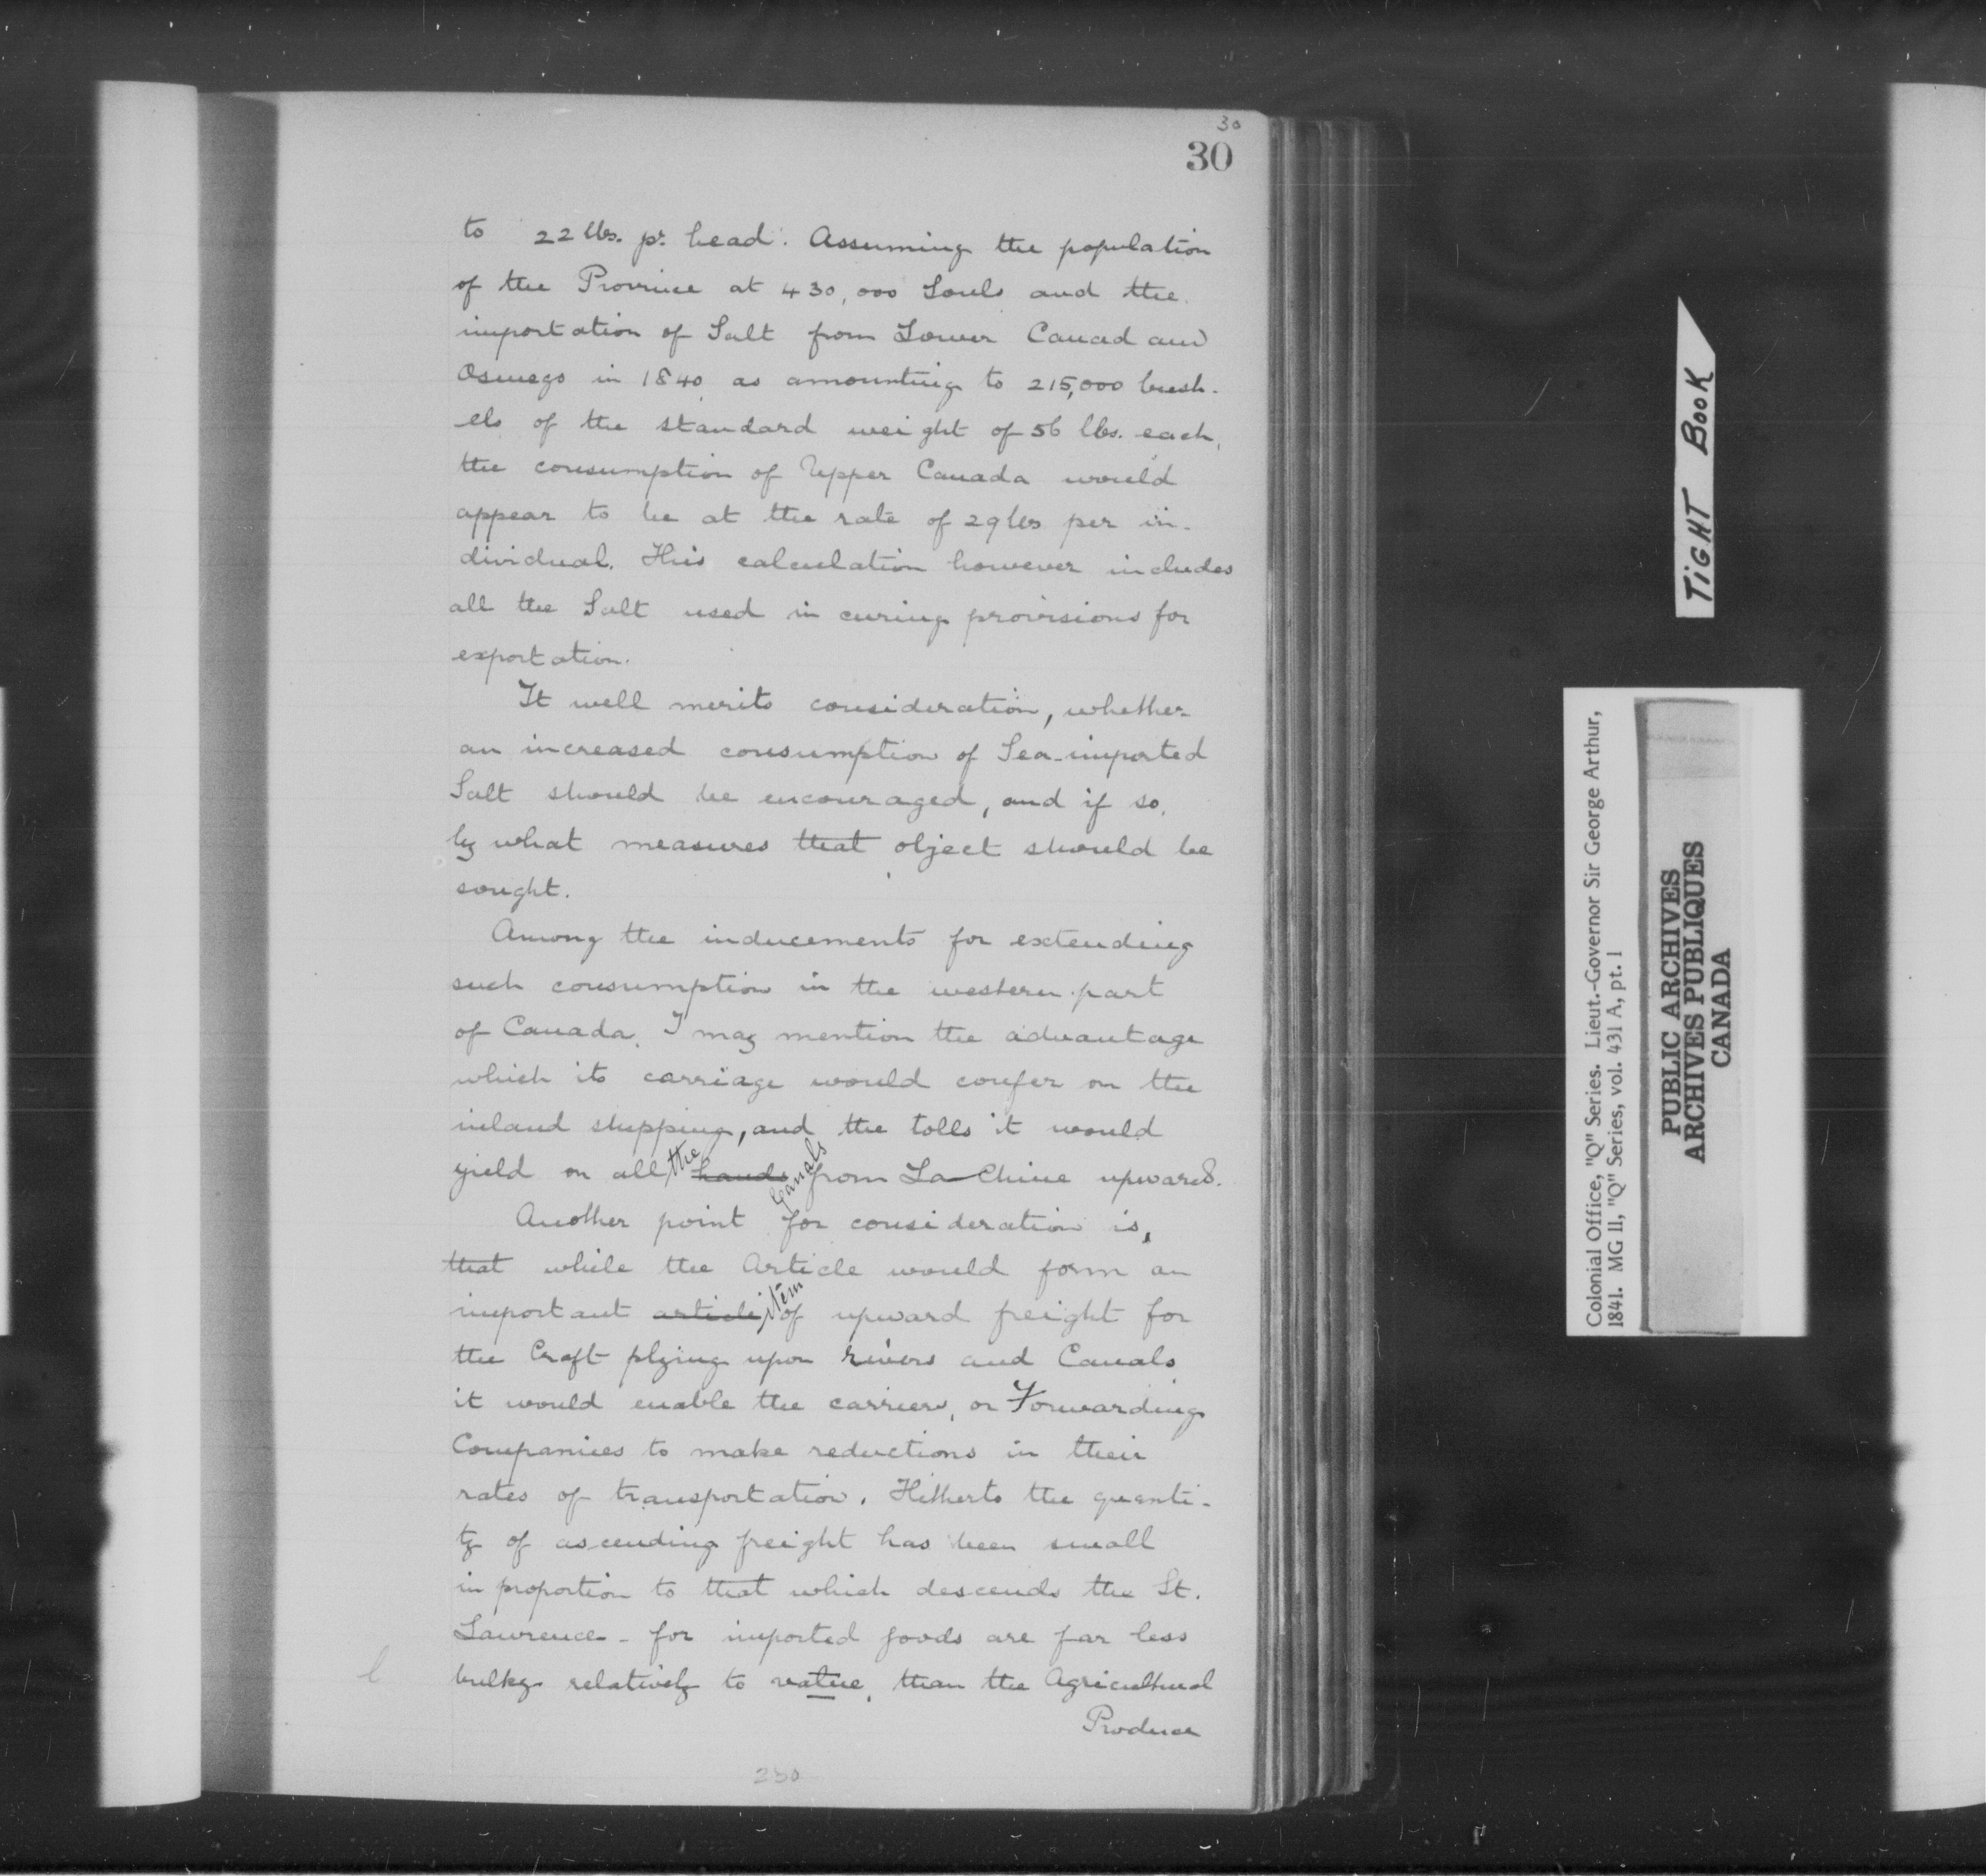 30
30
to 22 lbs. pr. head. Assuming the population
of the Province at 430,000 Souls and the
importation of Salt from Lower Canad and
Oswego in 1840 as amounting to 215,000 bush-
els of the standard weight of 56 lbs. each,
the consumption of Upper Canada would
appear to be at the rate of 29 lbs per in-
dividual. This calculation however includes
all the Salt used in curing provisions for
exportation.
It well merits consideration, whether
an increased consumption of Sea-imported
Salt should be encouraged, and if so,
by what measures that object should be
sought.
Among the inducements for extending
such consumption in the western part
of Canada, I may mention the advantage
which its carriage would confer on the
inland shipping, and the tolls it would
yield on all the hands Canals from La Chine upward.
Another point for consideration is,
that while the Article would form an
important article item of upward freight for
the Craft plying upon rivers and Canals
it would enable the carriers, or Forwarding
Companies to make reductions in their
rates of transportation. Hitherto the quanti-
ty of ascending freight has been small
in proportion to that which descends the St.
Lawrence - for imported goods are far less
l bulky relatively to value, than the Agricultural
Produce
230
TIGHT BOOK
Colonial Office, "Q" Series. Lieut.-Governor Sir George Arthur,
1841. MG 11, "Q" Series, vol. 431 A, pt. 1
PUBLIC ARCHIVES
ARCHIVES PUBLIQUES
CANADA